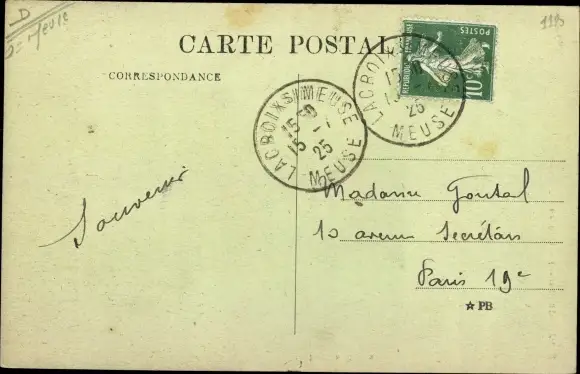 D
D= Meuse
1195
CARTE POSTALE
CORRESPONDANCE
POSTES
REPUBLIQUE FRANÇAISE
10
LACROIX S/ MEUSE
15 -1
25
MEUSE
LACROIX S/ MEUSE
15 -1
25
MEUSE
Souvenir
Madame Goutal
10 avenue Secrétan
Paris 19e
☆ PB